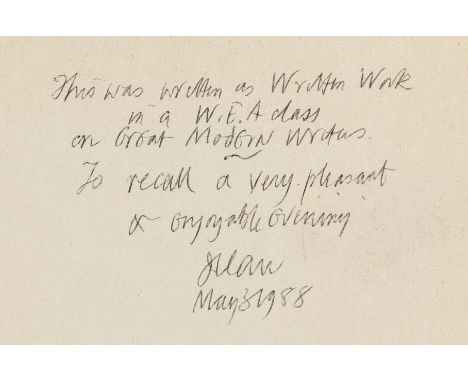 This was written as Written Work
in a W.E.A class
on Great Modern Writers.
To recall a very pleasant
& enjoyable Evening
Alan
May 3 1988